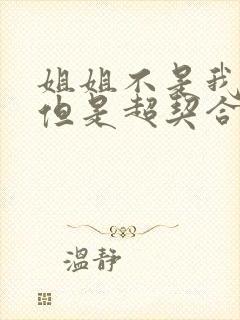 姐姐不是我
但是超契合
溫靜